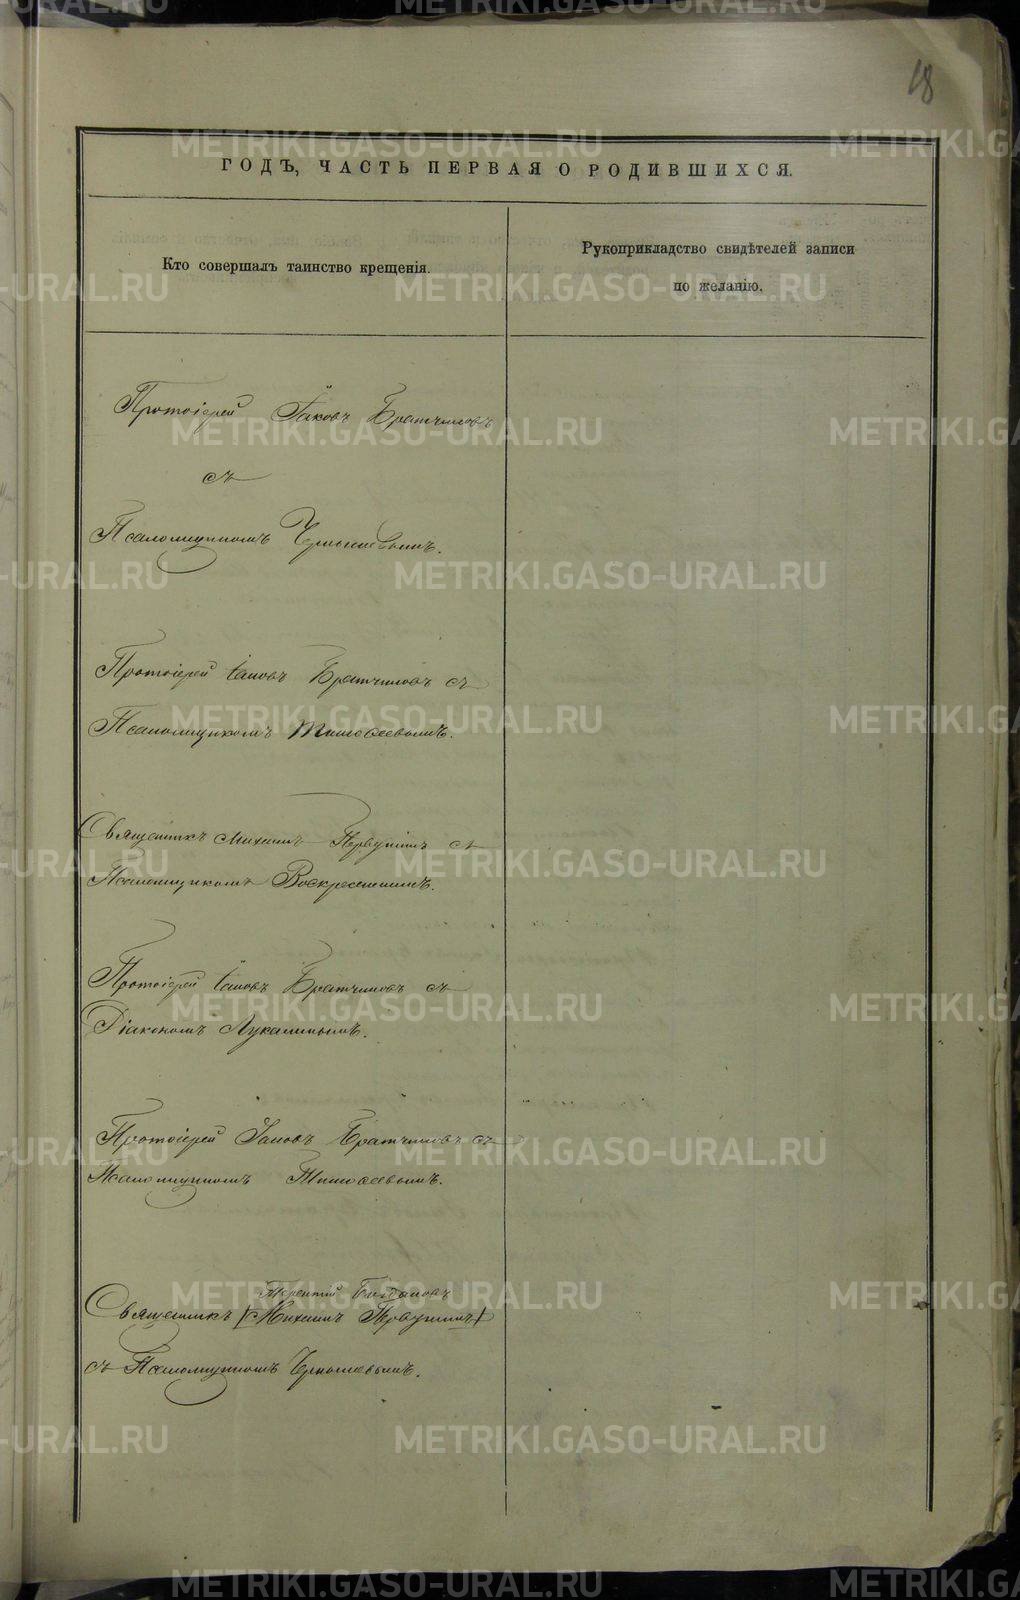 18
ГОДЪ, ЧАСТЬ ПЕРВАЯ О РОДИВШИХСЯ.
Кто совершалъ таинство крещенія.
Рукоприкладство свидѣтелей записи
по желанію.
Протоіерей Іаковъ Братчиковъ
съ
Псаломщикомъ
Протоіерей Іаковъ Братчиковъ съ
Псаломщикомъ Тимофеевымъ.
Священникъ Михаилъ Первушинъ съ
Псаломщикомъ Воскресенскимъ.
Протоіерей Іаковъ Братчиковъ съ
Діакономъ Лукинымъ.
Протоіерей Іаковъ Братчиковъ съ
Псаломщикомъ Тимофеевымъ.
Терентій
Священникъ (Михаилъ Первушинъ)
съ Псаломщикомъ
METRIKI.GASO-URAL.RU